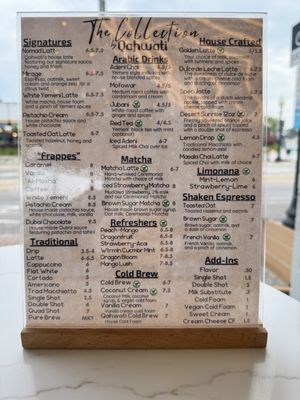 The Collection
by Qahwati
Signatures
Nomad Latte 6.5-7.5
Qahwati's house latte
featuring our signature sauce,
honey and thyme
Mirage
Espresso, oatmilk, sweet
cream and orange zest, for a
citrus twist
White Yemeni Latte
White mocha, house foam
and a mixture of Yemeni spices
Pistachio Cream
Toasted Oat Latte
Toasted hazelnut, honey and
oat
"Frappes"
Caramel 8
Vanilla 8
Mocha
Coffee
White Yemeni
Pistachio Cream
House made pistachio sauce
white chocolate, milk, vanilla
Dubai Chocolate
House Made Dubai sauce
featuring pistachio and tahini
Traditional
Drip 3.5-4
Latte 6-6.5
Cappuccino 6
Flat White 6
Cortado 4
Americano 5
Trad Macchiato 5
Single Shot 2.5
Double Shot 4
Quad Shot 7
Pure Brew MKT
Arabic Drinks
Adeni Chai 4.5/5
Yemeni style milk tea with
house blended
spices
Mofawar 4.5/5
Medium roast coffee with
cardamom and
cream
Jubani
White-roast coffee with
ginger and spices
Red Tea 4/5
Yemeni black tea with mint
(optional)
Iced Adeni 6-7
Spiced Milk Chai over ice
Matcha
Matcha Latte 6-7
Hand-whisked Ceremonial
Matcha with choice of milk
Iced Strawberry Matcha 8
Muddled Strawberry, 7k milk
and our Ceremonial Matcha
Brown Sugar Matcha 8
House made brown sugar syrup,
Oat milk, Ceremonial Matcha
Refreshers
Peach-Mango 6-8
Dragonfruit 6-8
Strawberry-Acai 6-8
Wtrmln Cucmbr Mint 6-8
Dragon Bloom 7-8.5
Mango Lush 7-8.5
Cold Brew
Cold Brew 6-7
Coconut Cream 7-8
Coconut Milk, coconut
syrup, & vegan cold foam
Vanilla Cream 7-8
Vanilla cream
Qahwati Cold Brew 7-8
House Cold Foam
House Crafted
Golden Latte
Honey, cinnamon,
turmeric
Dulce de Leche Latte
The sweetness of dulce de leche
with a dash of cinnamon
Spec. latte
Desert Sunrise
with a double shot of espresso
Lemon Drop
Traditional Macchiato
candied lemon zest
Masala Chai Latte 6-7
Spiced Chai with your choice of milk
Limonana 8
Mint-Lemon
Strawberry-Lime
Shaken Espresso
Toasted Oat 7
Toasted hazelnut and oatmilk
Brown Sugar 7
Brown sugar, oatmilk, and
a pinch of cinnamon
French Vanilla 7
French vanilla, oatmilk,
and a pinch of cinnamon
Add-Ins
Flavor .50
Single Shot 1.5
Double Shot 3
Milk Substitute .7
Cold Foam 1
Vegan Cold Foam 1
Sweet Cream 1
Cream Cheese CF 1.5